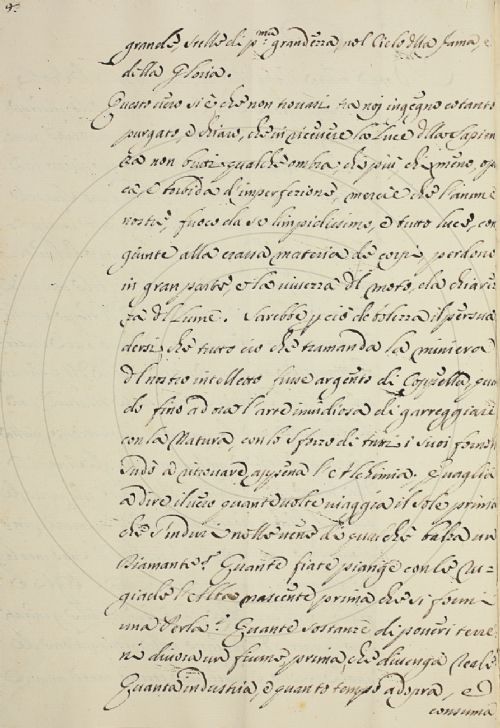 grande, stelle di p.ma grandezza, nel Cielo della Fama, e
della Gloria.
Questo vero si è che non trovasi tra noi ingegno cotanto
purgato, e chiaro, che in ricevere la luce della Sapien
za non butti qualche ombra, che più che meno, opa
ca, e torbida d'imperfezione, mercè che l'anime
nostre, fuoco da se limpidissimo, e tutto luce, con
giunte alla crassa materia de corpi, perdono
in gran parte e la vivezza del moto, e la chiarez
za del Lume. Sarebbe p ciò debolezza il persua
dersi, che tutto ciò che tramanda la miniera
del nostro intelletto fusse argento di Coppella, qua
do fino ad ora l'arte invidiosa di gareggiare
con la Natura, con lo sforzo di tutti i suoi fornelli
sudò a ritrovare appena l'Alchimia. E vaglia
a dire il vero quante volte viaggia il Sole prima
che s'induri nelle vene di qualche balza un
Diamante? Quante fiate piange con le Ru-
giade l'Alba nascente prima che si formi
una Perla? Quante sostanze di poveri terre
ni divora un fiume prima, che divenga Reale
Quanta industria, e quanto tempo adopra, ed
consuma